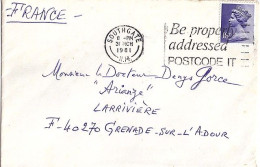 -FRANCE-
SOUTHGATE
Be properly
addressed
POSTCODE IT
Monsieur le Docteur Denys Gorce
"Arianze"
LARRIVIÈRE
F-40270 GRENADE-SUR-L'ADOUR